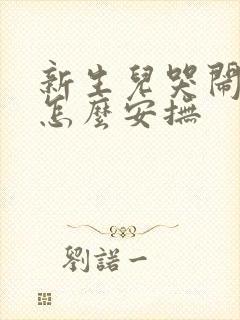 新生兒哭鬧
怎麼安撫
劉諾一